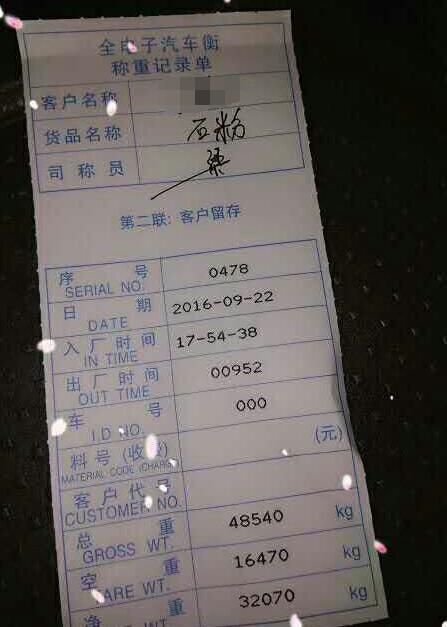 全电子汽车衡
称重记录单
客户名称
货品名称 石粉
司称员
第二联: 客户留存
序 号 0478
SERIAL NO.
日 期 2016-09-22
DATE
入厂时间 17-54-38
IN TIME
出厂时间 00952
OUT TIME
车 号 000
I.D NO.
料号(收费) (元)
MATERIAL CODE (CHARGE)
客户代号
CUSTOMER NO.
总 重 48540 kg
GROSS WT.
空 重 16470 kg
TARE WT.
净 重 32070 kg